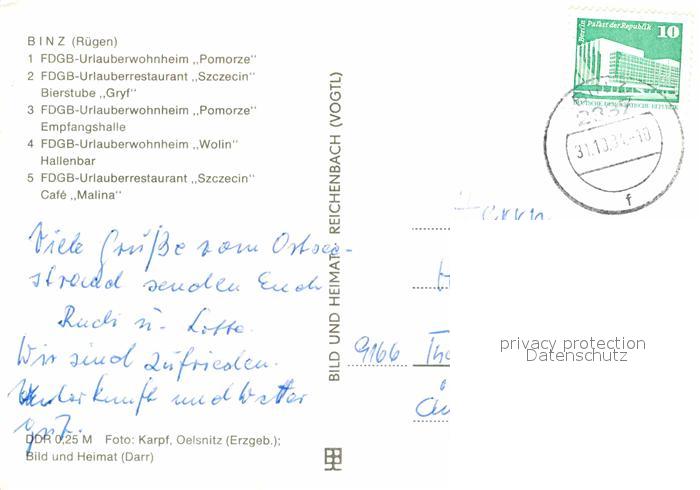 BINZ (Rügen)
1 FDGB-Urlauberwohnheim „Pomorze"
2 FDGB-Urlauberrestaurant „Szczecin"
Bierstube „Gryf"
3 FDGB-Urlauberwohnheim „Pomorze"
Empfangshalle
4 FDGB-Urlauberwohnheim „Wolin"
Hallenbar
5 FDGB-Urlauberrestaurant „Szczecin"
Café „Malina"
Viele Grüße vom Ostsee-
strand senden Euch
Rudi u. Lotte.
Wir sind zufrieden.
Unterkunft und Wetter
gut.
DDR 0,25 M Foto: Karpf, Oelsnitz (Erzgeb.);
Bild und Heimat (Darr)
BILD UND HEIMAT REICHENBACH (VOGTL)
Berlin Palast der Republik
10
DEUTSCHE DEMOKRATISCHE REPUBLIK
2337
31.10.84-10
f
Herrn
9166
privacy protection
Datenschutz